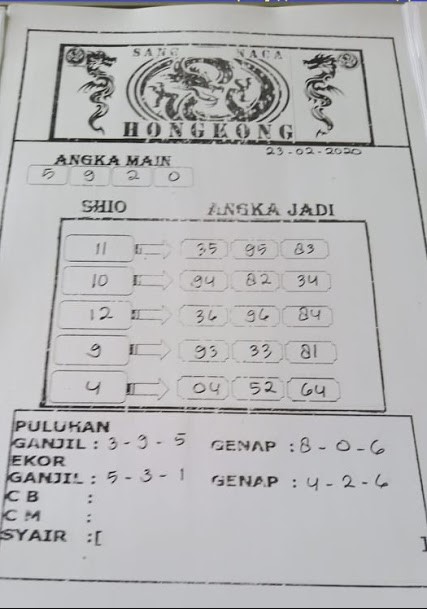 SANG NAGA
HONGKONG
23-02-2020
ANGKA MAIN
5 9 2 0
SHIO ANGKA JADI
11 35 95 83
10 94 82 34
12 36 96 84
9 93 33 81
4 04 52 64
PULUHAN
GANJIL : 3-9-5 GENAP : 8-0-6
EKOR
GANJIL : 5-3-1 GENAP : 4-2-6
C B :
C M :
SYAIR :[ ]